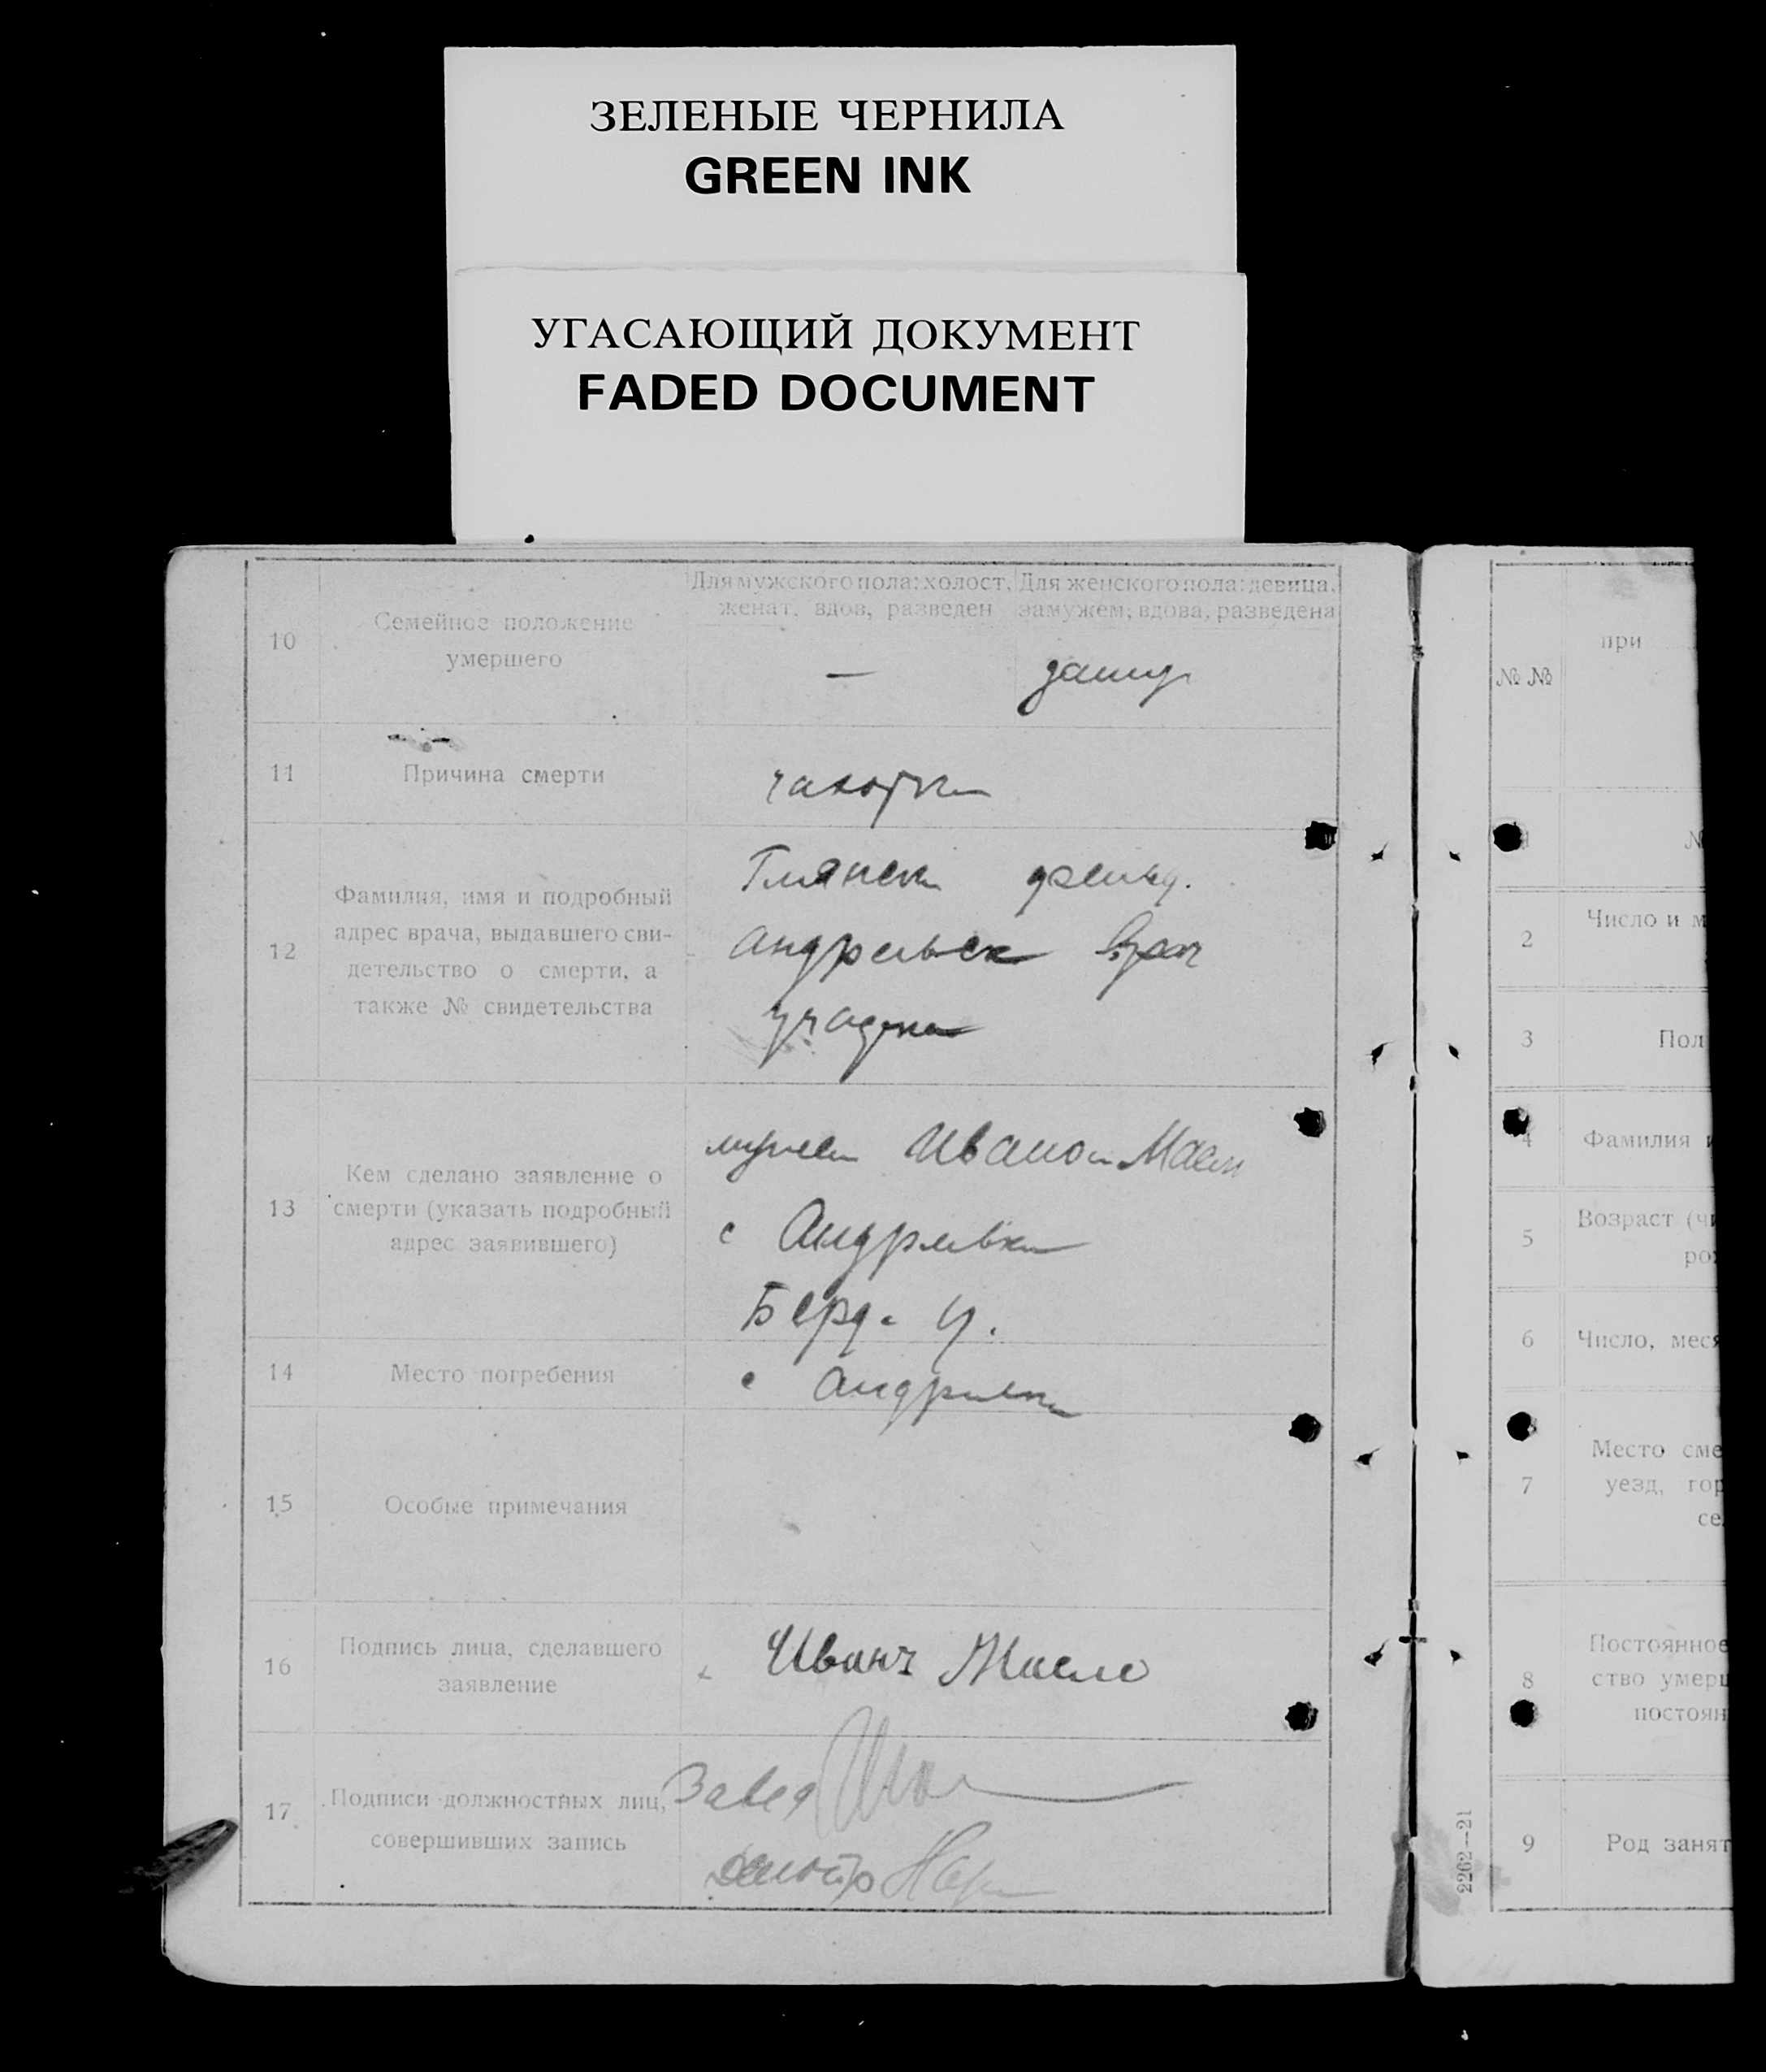 ЗЕЛЕНЫЕ ЧЕРНИЛА
GREEN INK
УГАСАЮЩИЙ ДОКУМЕНТ
FADED DOCUMENT
10
Семейное положение
умершего
Для мужского пола: холост,
женат, вдов, разведен
Для женского пола: девица,
замужем, вдова, разведена
—
замуж
11
Причина смерти
чахотка
12
Фамилия, имя и подробный
адрес врача, выдавшего сви-
детельство о смерти, а
также № свидетельства
врач
13
Кем сделано заявление о
смерти (указать подробный
адрес заявившего)
с Андреевка
Берд. у.
14
Место погребения
с
15
Особые примечания
16
Подпись лица, сделавшего
заявление
Иван Масло
17
Подписи должностных лиц,
совершивших запись
Завед
№ №
при
2
Число и м
3
Пол
4
Фамилия и
5
Возраст (чи
ро
6
Число, меся
7
Место сме
уезд, гор
се
8
Постоянное
ство умерш
постоян
9
Род занят
2262—21